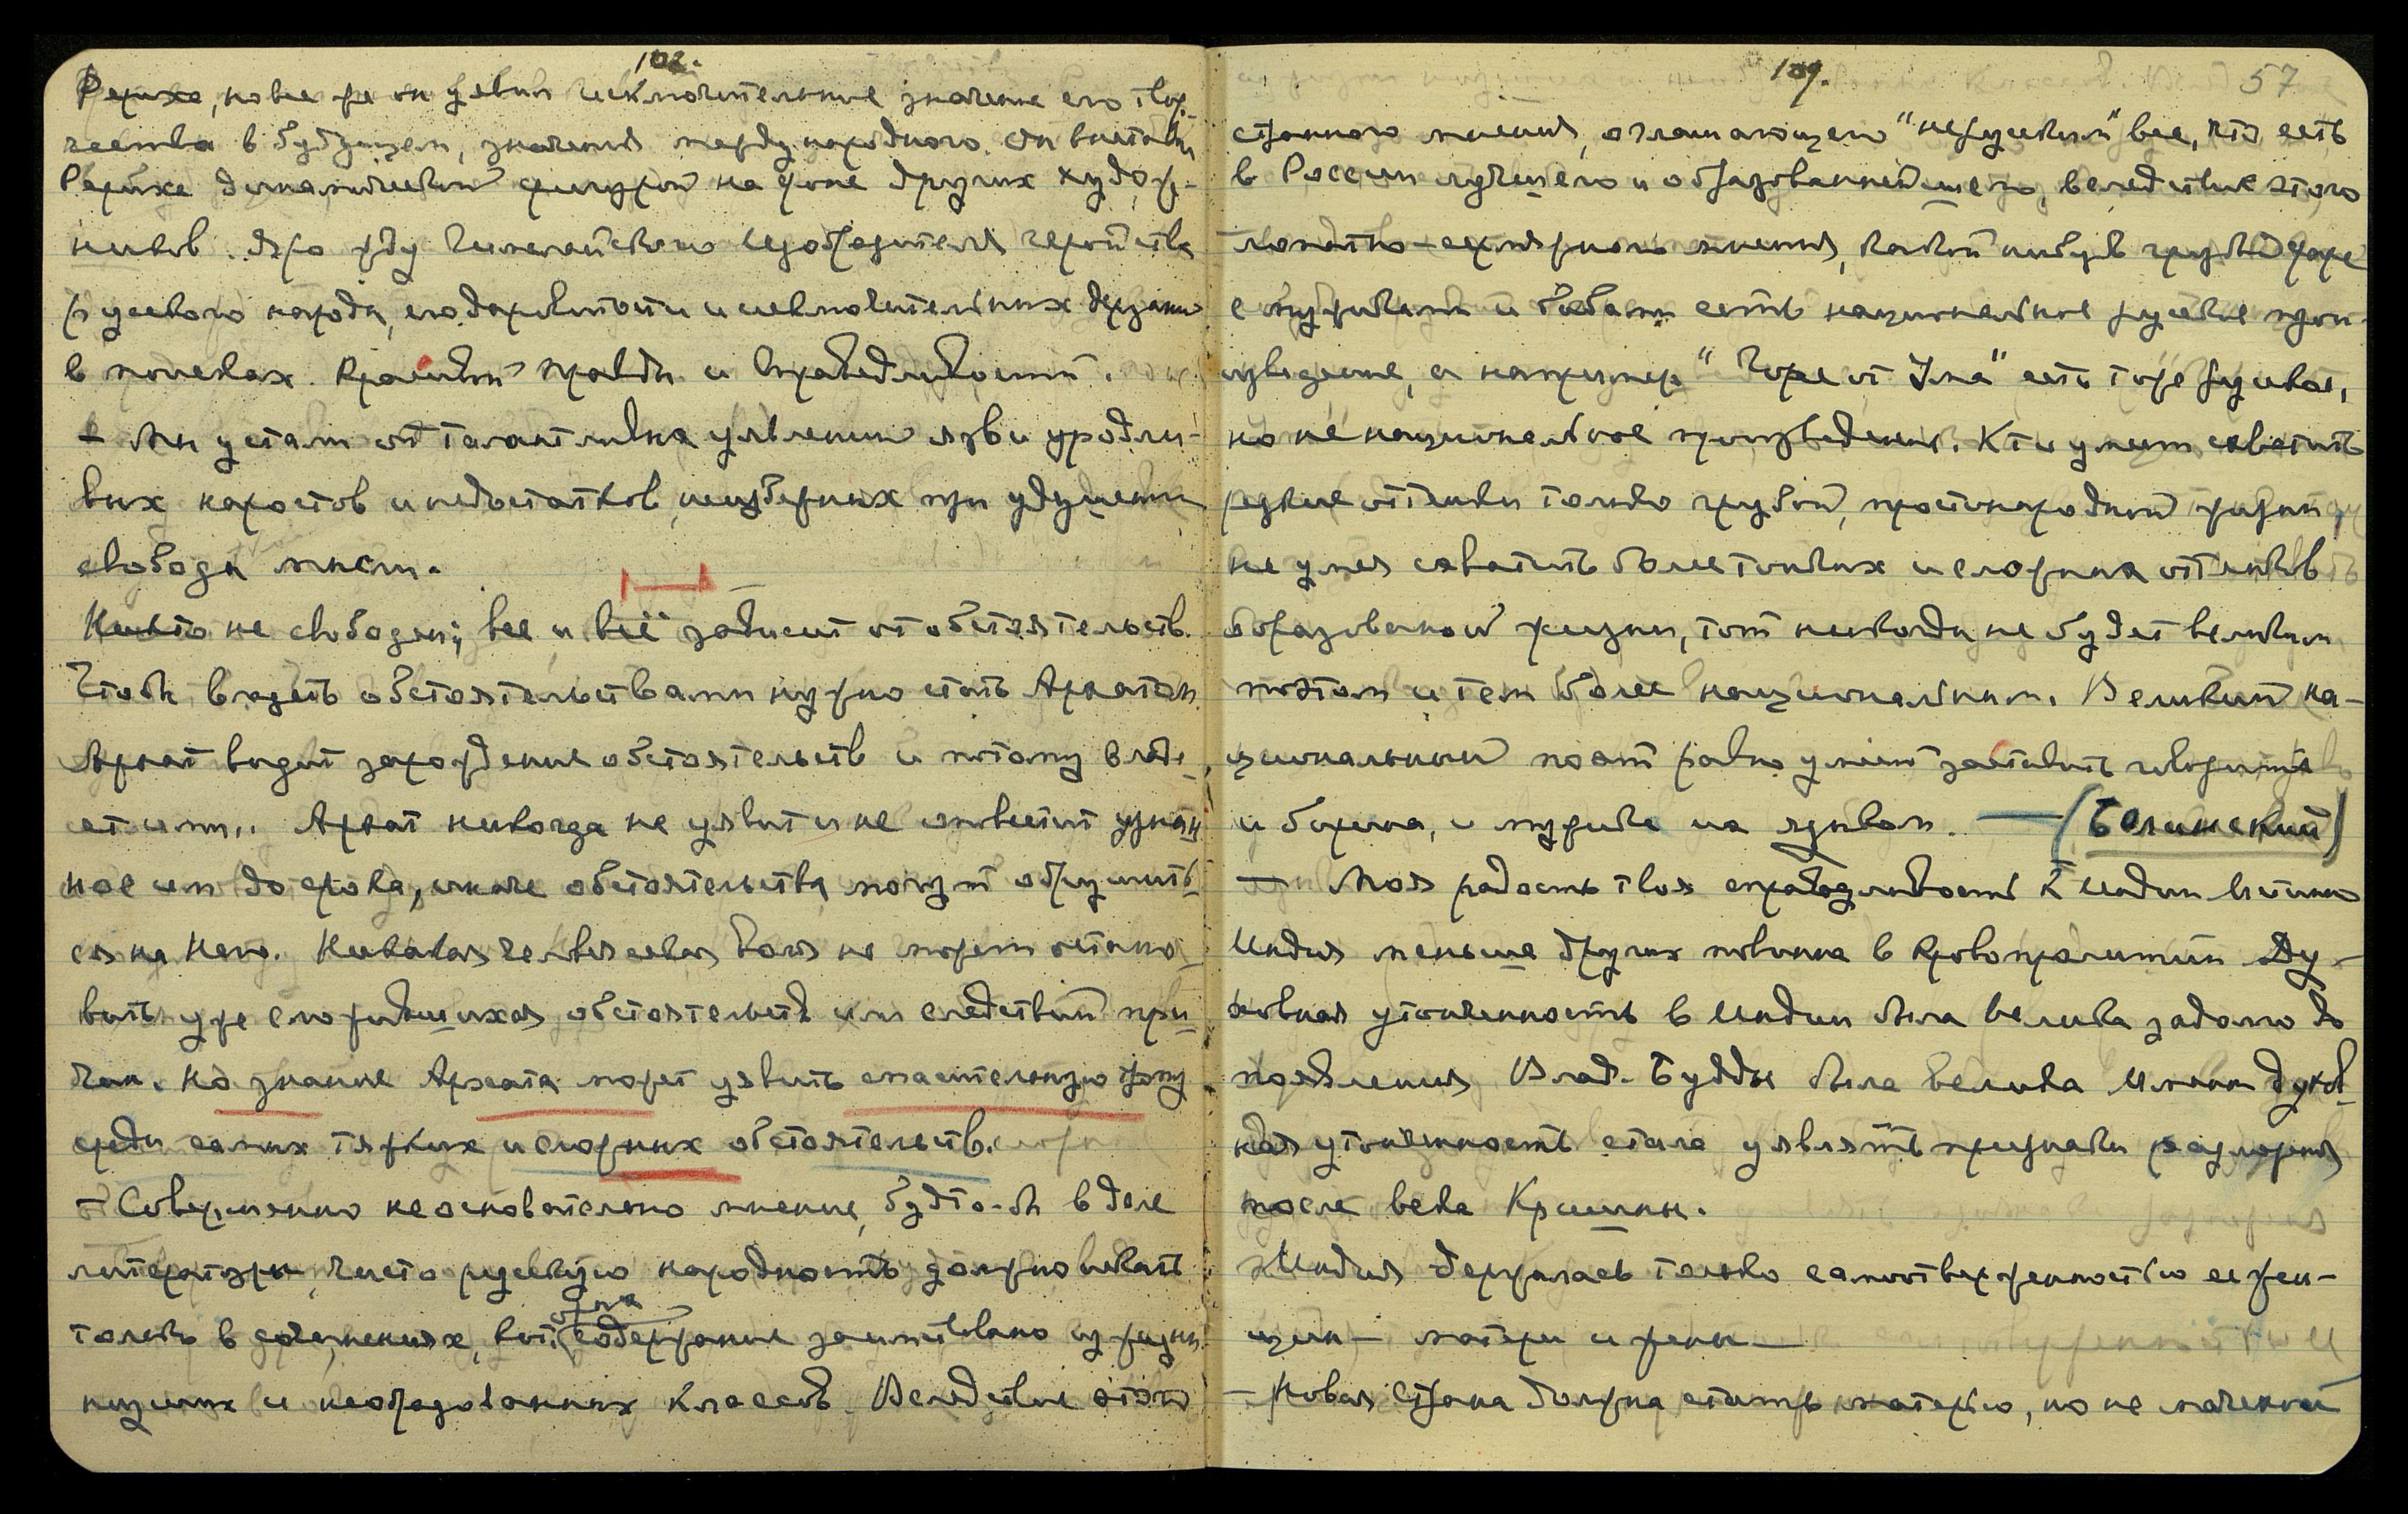 102.
Рериха, но все же он уявил исключительное значение его твор-
чества в будущем, значения международного. Он выставил
Рериха динамической фигурой на фоне других худож-
ников. Яро жду Гималайского Изобразителя геройства
русского народа, его даровитости и исключительных дерзаний
в поисках Красоты Правды и Справедливости.
– Мы устали от талантливых уявлений язв и уродли-
вых наростов и недостатков, неизбежных при удушении
свободы мысли.
Никто не свободен; все и всё зависит от обстоятельств.
Чтобы владеть обстоятельствами нужно стать Архатом.
Архат видит зарождение обстоятельств и потому владе-
ет ими. Архат никогда не уявит и не оповестит узнан-
ное им до срока, иначе обстоятельства могут обрушить-
ся на Него. Никакая человеческая воля не может остано-
вить уже сложившихся обстоятельств или следствий при-
чин. Но знание Архата может уявить спасительную тропу
среди самых тяжких и сложных обстоятельств.
– Совершенно неосновательно мнение, будто-бы в деле
литературы чисто русскую народность должно искать
только в сочинениях, коих содержание заимствовано из жизни
низших и необразованных классов. Вследствие этого
109.
57
странного мнения, оглашающего "не русским" все, что есть
в России лучшего и образованнейшего, вследствие этого
лапотно-сермяжного мнения, какой нибудь грубый фарс
с мужиками и бабами есть национальное русское прои-
зведение, а например "Горе от Ума" есть тоже русское,
но не национальное произведение. Кто умеет схватить
резкие оттенки только грубой, простонародной жизни,
не умея схватить более тонких и сложных оттенков
образованной жизни, тот никогда не будет великим
поэтом и тем более национальным. Великий на-
циональный поэт равно умеет заставить говорить
и барина, и мужика их языком. — (Белинский)
— Моя радость твоя справедливость к Индии. Истинно
Индия меньше других повинна в кровопролитии. Ду-
ховная утонченность в Индии была велика задолго до
появления Влад. Будды была велика. Именно духов-
ная утонченность стала уявлять признаки разложения
после века Кришны.
Индия держалась только самоотверженностью ее жен-
щин – матери и жены —
– Новая Страна должна стать матерью, но не мачехой